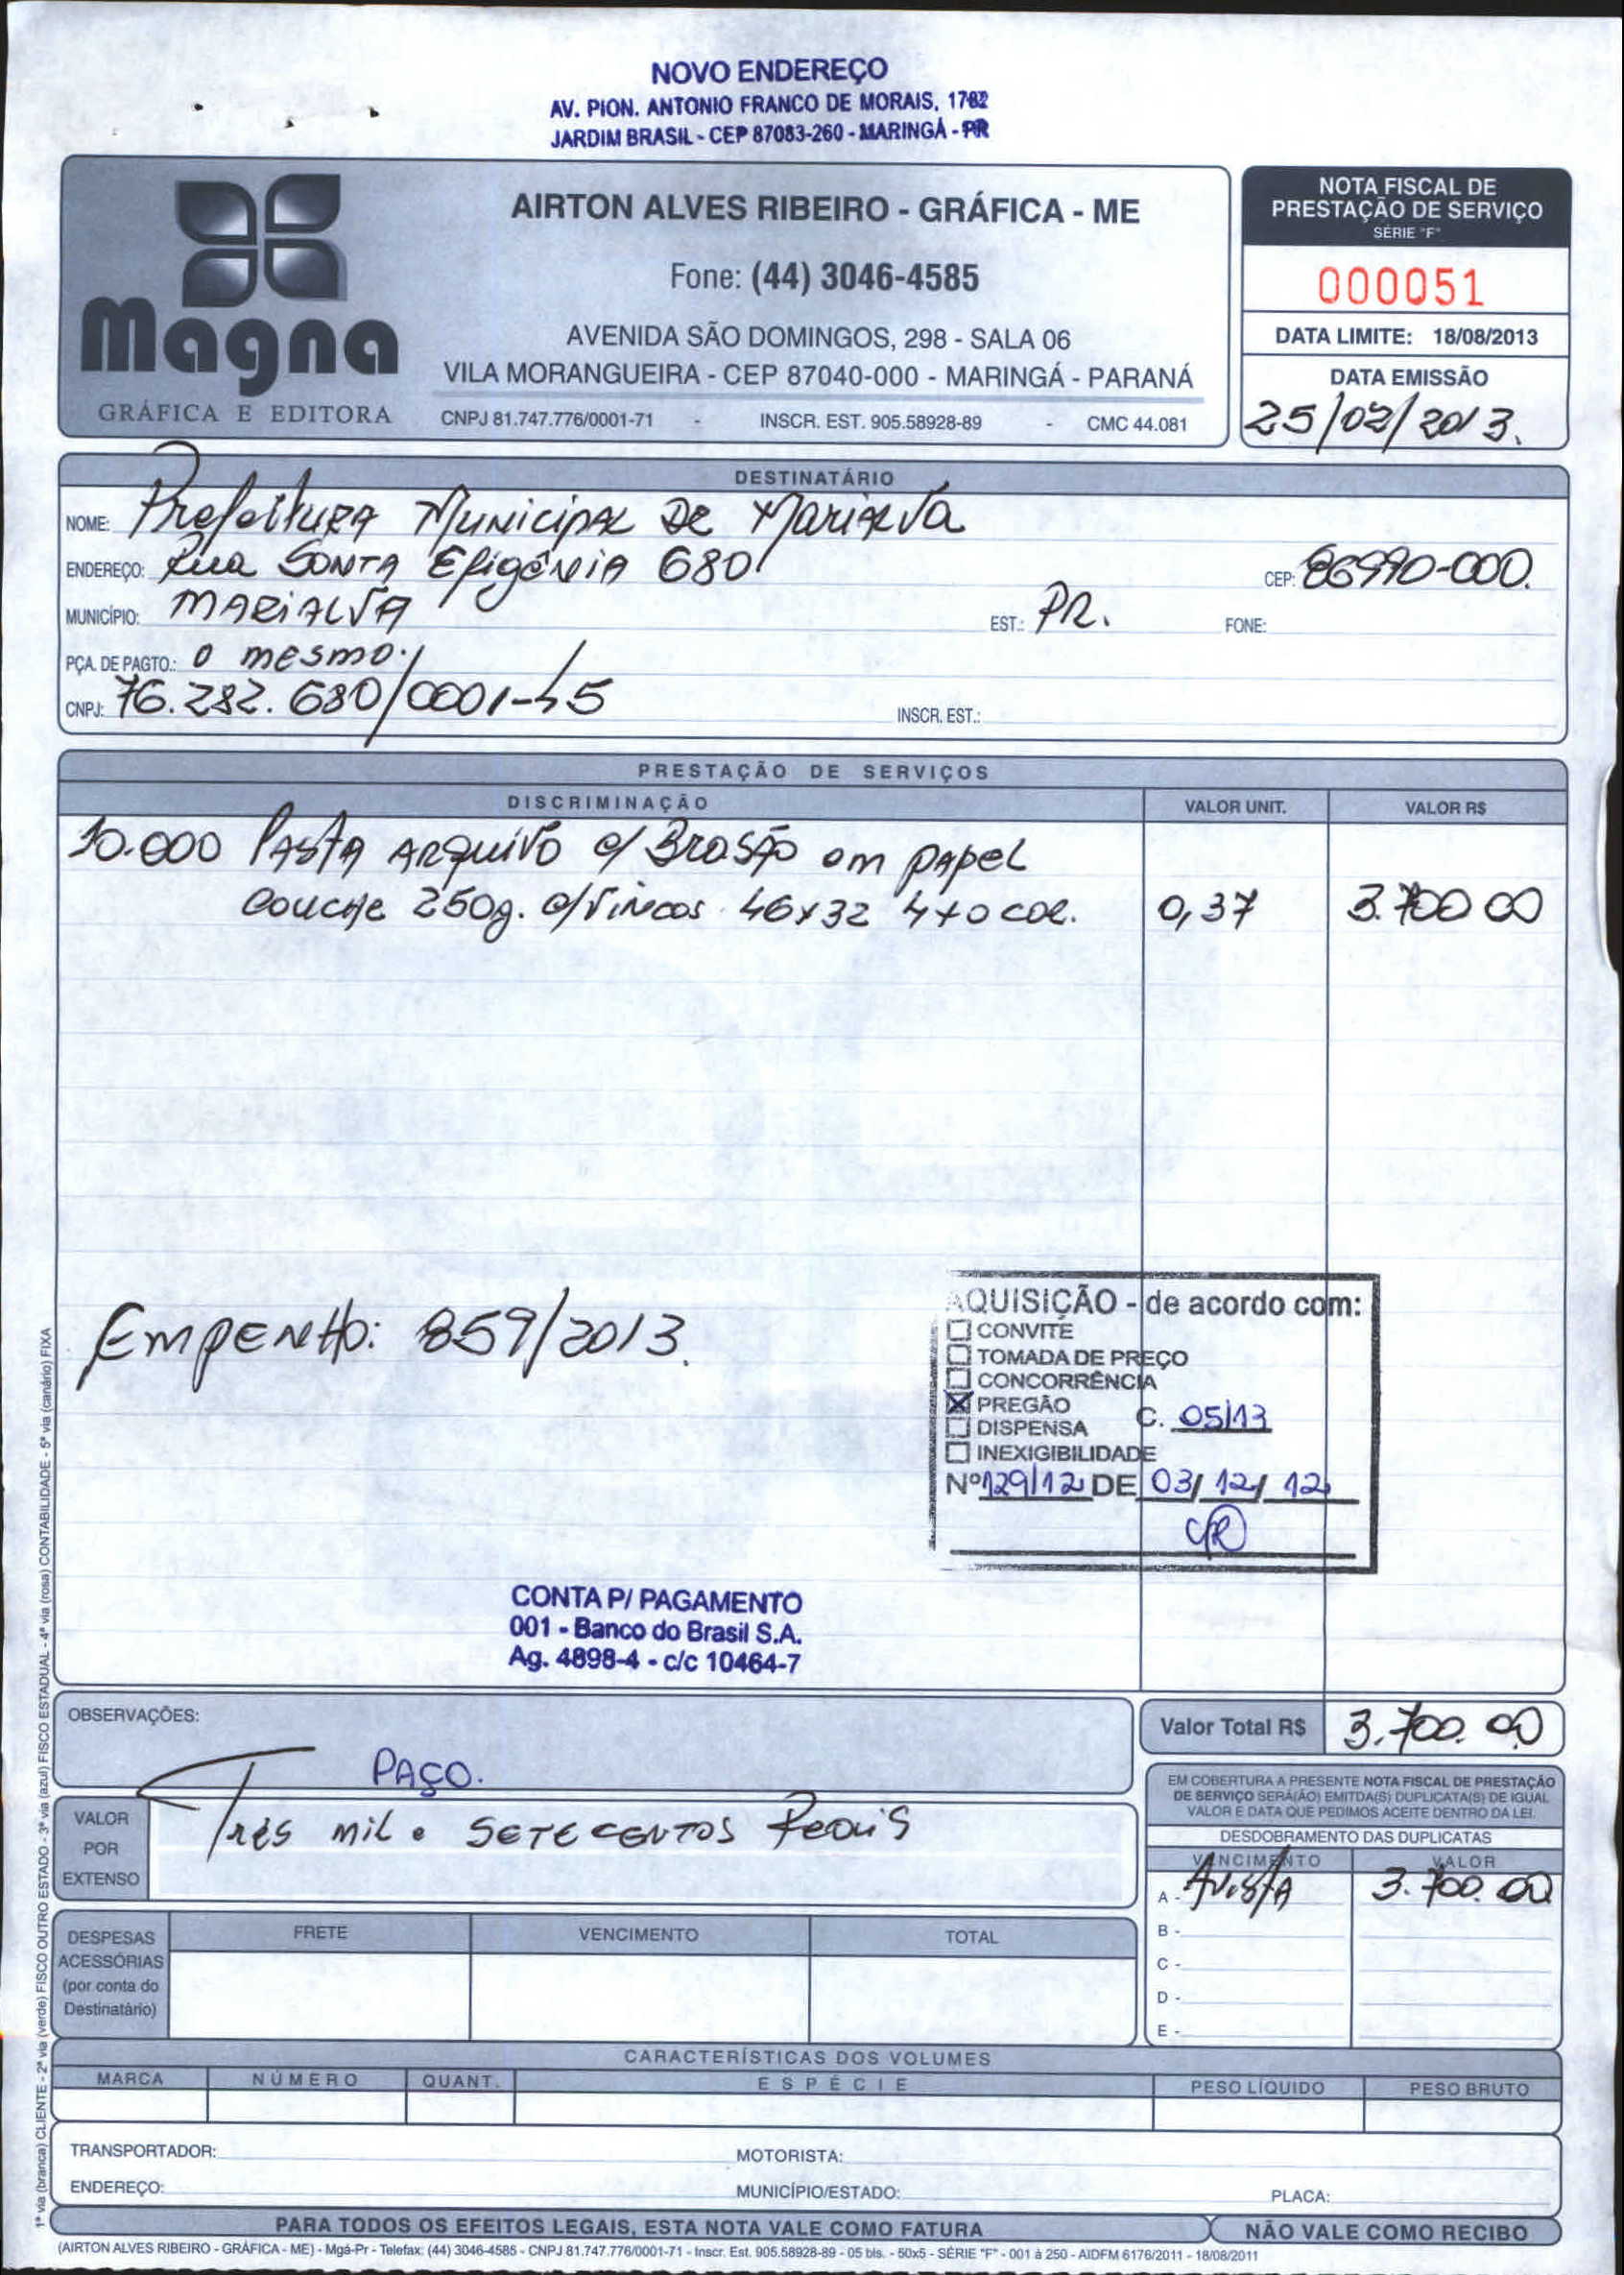 NOVO ENDEREÇO
AV. PION. ANTONIO FRANCO DE MORAIS, 1782
JARDIM BRASIL - CEP 87083-260 - MARINGÁ - PR
Magna
GRÁFICA E EDITORA
AIRTON ALVES RIBEIRO - GRÁFICA - ME
Fone: (44) 3046-4585
AVENIDA SÃO DOMINGOS, 298 - SALA 06
VILA MORANGUEIRA - CEP 87040-000 - MARINGÁ - PARANÁ
CNPJ 81.747.776/0001-71 - INSCR. EST. 905.58928-89 - CMC 44.081
NOTA FISCAL DE
PRESTAÇÃO DE SERVIÇO
SÉRIE "F"
000051
DATA LIMITE: 18/08/2013
DATA EMISSÃO
25/02/2013.
DESTINATÁRIO
NOME: Prefeitura Municipal De Marialva
ENDEREÇO: Rua Santa Efigênia 680 CEP: 86990-000.
MUNICÍPIO: MARIALVA EST.: PR. FONE:
PÇA. DE PAGTO.: O mesmo.
CNPJ: 76.282.680/0001-45 INSCR. EST.:
PRESTAÇÃO DE SERVIÇOS
DISCRIMINAÇÃO VALOR UNIT. VALOR R$
10.000 Pasta Arquivo c/ Brasão em papel
couche 250g. c/vincos 46x32 4x0 cor. 0,37 3.700 00
Empenho: 859/2013.
AQUISIÇÃO - de acordo com:
CONVITE
TOMADA DE PREÇO
CONCORRÊNCIA
PREGÃO C. 05/13
DISPENSA
INEXIGIBILIDADE
Nº 129/12 DE 03/12/12
CONTA P/ PAGAMENTO
001 - Banco do Brasil S.A.
Ag. 4898-4 - c/c 10464-7
OBSERVAÇÕES:
PAÇO.
Valor Total R$ 3.700.00
VALOR
POR
EXTENSO
Três mil e setecentos Reais
EM COBERTURA A PRESENTE NOTA FISCAL DE PRESTAÇÃO
DE SERVIÇO SERÁ(ÃO) EMITDA(S) DUPLICATA(S) DE IGUAL
VALOR E DATA QUE PEDIMOS ACEITE DENTRO DA LEI.
DESDOBRAMENTO DAS DUPLICATAS
VENCIMENTO VALOR
A - Avista 3.700.00
B -
C -
D -
E -
DESPESAS
ACESSÓRIAS
(por conta do
Destinatário)
FRETE VENCIMENTO TOTAL
CARACTERÍSTICAS DOS VOLUMES
MARCA NÚMERO QUANT. ESPÉCIE PESO LÍQUIDO PESO BRUTO
TRANSPORTADOR: MOTORISTA:
ENDEREÇO: MUNICÍPIO/ESTADO: PLACA:
PARA TODOS OS EFEITOS LEGAIS, ESTA NOTA VALE COMO FATURA NÃO VALE COMO RECIBO
(AIRTON ALVES RIBEIRO - GRÁFICA - ME) - Mgá-Pr - Telefax: (44) 3046-4585 - CNPJ 81.747.776/0001-71 - Inscr. Est. 905.58928-89 - 05 bls. - 50x5 - SÉRIE "F" - 001 à 250 - AIDFM 6176/2011 - 18/08/2011
1ª via (branca) CLIENTE - 2ª via (verde) FISCO OUTRO ESTADO - 3ª via (azul) FISCO ESTADUAL - 4ª via (rosa) CONTABILIDADE - 5ª via (canário) FIXA